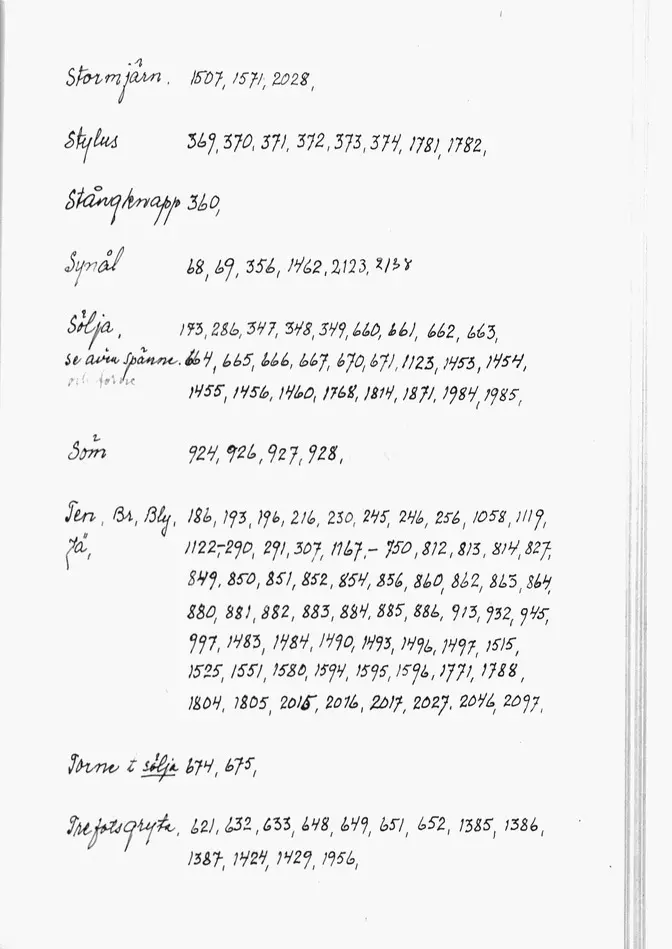 Stormjärn. 1507, 1571, 2028,
Stylus 369, 370, 371, 372, 373, 374, 1781, 1782,
Stångknapp 360,
Synål 68, 69, 356, 1462, 2123, 2138
Sölja, 173, 286, 347, 348, 349, 660, 661, 662, 663,
se även spänne. 664, 665, 666, 667, 670, 671, 1123, 1453, 1454,
och torne 1455, 1456, 1460, 1768, 1814, 1871, 1984, 1985,
Söm 924, 926, 927, 928,
Ten, Br, Bly, 186, 193, 196, 216, 230, 245, 246, 256, 1058, 1119,
Jä, 1122-290, 291, 307, 1167,- 750, 812, 813, 814, 827,
849, 850, 851, 852, 854, 856, 860, 862, 863, 864,
880, 881, 882, 883, 884, 885, 886, 913, 932, 945,
997, 1483, 1484, 1490, 1493, 1496, 1497, 1515,
1525, 1551, 1580, 1594, 1595, 1596, 1771, 1788,
1804, 1805, 2015, 2016, 2017, 2027, 2046, 2097,
Torne t sölja 674, 675,
Trefotsgryta, 621, 632, 633, 648, 649, 651, 652, 1385, 1386,
1387, 1424, 1429, 1956,